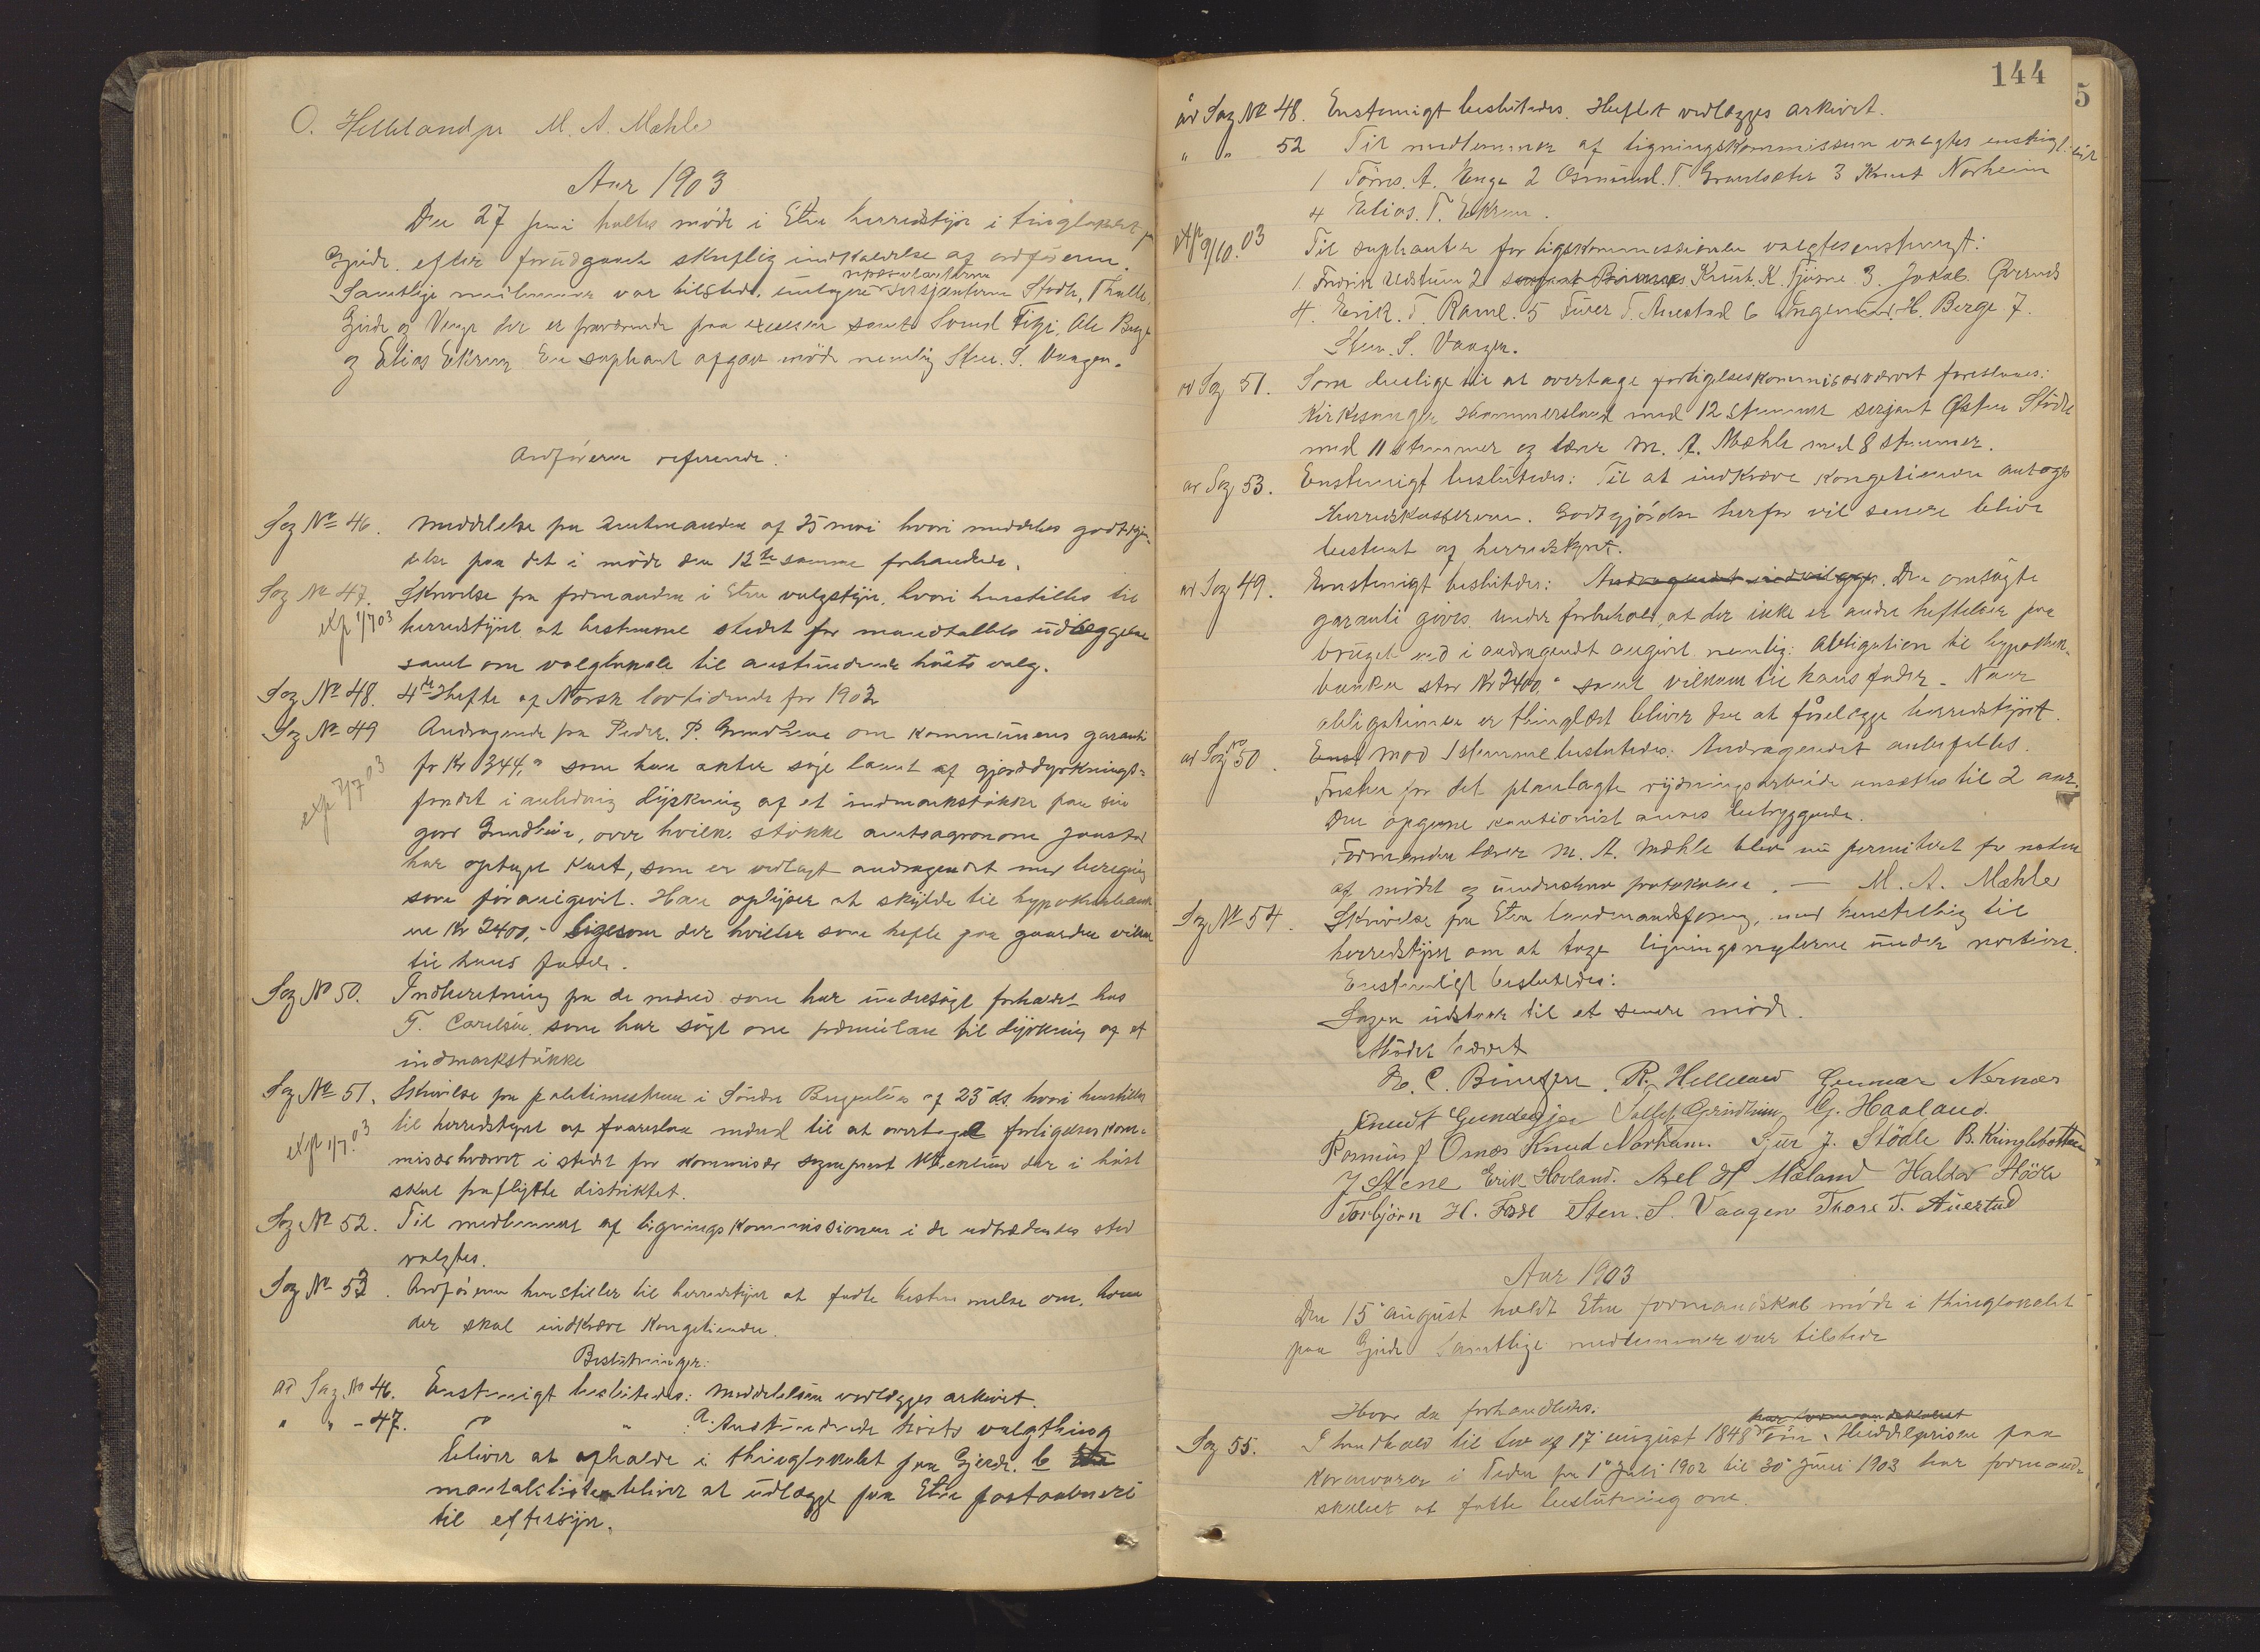 O. Helleland jr M. A. Mæhle
Aar 1903
Den 27 juni holtes møde i Etne herredstyre i tinglokalet
Gjerde efter forudgaaende skriftlig indkaldelse af ordføreren.
representanterne
Samtlige medlemmer var tilstede undtagen sersjanterne Stødle, Tballe
Gjerde og Venge der er fraværende paa samt Svend Fitje, Ole Berge
og Elias Ekrem. En suphant afgav møde nemlig Sten. S. Vaagen.
Ordføreren referende:
Sag No 46. Meddelelse fra amtmanden af 25 mai hvori meddeles godkjen-
delse paa det i møde den 12te samme forhandlede.
Sag No 47. Skrivelse fra formanden i Etne valgstyre, hvori henstilles til
exp 1/7 03 herredstyret at bestemme stedet for mandtallets udlæggelse
samt om valglokale til anstundende høsts valg.
Sag No 48. 4de Hefte af Norsk lovtidende for 1902
Sag No 49 Andragende fra Peder. P. Grindheim om kommunens garanti
exp 7/7 03 for Kr 344,- som han akter søge laant af jorddyrknings-
fondet i anledning dyrkning af et indmarkstykke paa sin
gard Grindheim, over hvilke stykke amtsagronom Jaastad
har optaget Kart, som er vedlagt andragendet med beregning
som foran angivet. Han oplyser at skylde til hypothekbank-
en Kr 2400,- ligesom der hviler som hefte paa gaarden vilkaar
til hans fader.
Sag No 50. Indberetning fra de mænd som har undersøgt forholdet hos
T. Carelsen som har søgt om præmielaan til dyrkning af et
indmarkstykke
Sag No 51. Skrivelse fra politimesteren i Søndre Bergenhus af 23 ds. hvori henstilles
exp 1/7.03 til herredstyret at foreslaa mænd til at overtage forligelseskom-
misærhvervet i stedet for kommisær sogneprest der i høst
skal fraflytte distriktet.
Sag No 52. Til medlemmer af ligningskommissionen i de udtrædendes sted
valgtes.
Sag No 53. Ordføreren henstiller til herredstyret at fatte bestemmelse om, hvem
der skal indkræve Kongetienden.
Beslutninger:
ad Sag No 46. Enstemigt besluttedes: Meddelelsen vedlægges arkivet.
" " - 47. " " : a. Anstundende høsts valgthing
bliver at afholde i thinglokalet paa Gjerde. b
mantalslisten bliver at udlægge paa Etne postaabneri
til eftersyn.
144
5
ad Sag No 48. Enstemigt besluttedes. Heftet vedlægges arkivet.
" " 52 Til medlemmer af ligningskommissionen valgtes
1 Tørres. A. Enge 2 Osmund. T. Grautsæter 3 Knut Norheim
4 Elias. T. Ekrem.
exp 9/10.03 Til suphanter for ligskommissionen valgtes enstemigt:
1. Fredrik 2 Knut. K. Tjørne 3. Jakob Øvernes
4. Erik. T. Rame. 5 Siver T. Auestad 6 Ingemund. H. Berge 7.
Sten. S. Vaagen.
ad Sag 51. Som duelige til at overtage forligelseskommisærværvet foreslaaes:
Kirkesanger Hammersland med 12 stemmer serjant Østen Stødle
med 11 stemmer og lærer M. A. Mæhle med 8 stemmer.
ad Sag 53. Enstemigt besluttedes: Til at indkræve kongetienden antages
herredskassereren. Godtgjørelse herfor vil senere blive
bestemt af herredstyret.
ad Sag 49. Enstemigt besluttedes: Andragendet indvilges. Den omsøgte
garanti gives under forbehold, at der ikke er andre heftelser paa
bruget end i andragendet angivet nemlig: Obligation til hypothek-
banken stor Kr 2400,- samt vilkaar til hans fader. Naar
obligationen er thinglæst bliver den at forelægge herredstyret.
ad Sag No 50. Enst Mod 1 stemme besluttedes: Andragendet anbefales.
Fristen for det planlagte rydningsarbeide ansættes til 2 aar.
Den opgivne kautionist ansees betryggende.
Formanden lærer M. A. Mæhle blev nu permiteret for resten
af mødet og underskrev protokollen. — M. A. Mæhle
Sag No 54. Skrivelse fra Etne landmandsforening, med henstilling til
herredstyret om at tage ligningsreglerne under revision.
Enstemigt besluttedes:
Sagen udstaar til et senere møde.
Mødet hævet
R. Helleland Gunnar Nernæs
Knudt Gunderjei G. Haaland.
Rasmus J Osnæs Knud Norheim. Siur J. Stødle B. Kringlebotten
J Stene Erik Hovland. Axel H Mæland Haldor Stødle
Torbjørn H. Fosse Sten. S. Vaagen Thore T. Auestad
Aar 1903
Den 15de august holdt Etne formandskab møde i thinglokalet
paa Gjerde Samtlige medlemmer var tilstede
Hvor da forhandledes.
har formandskabet
Sag 55. I henhold til lov af 17de august 1848 om Middelprisen paa
Kornvarer i Tiden fra 1de Juli 1902 til 30de Juni 1903 har formand-
skabet at fatte beslutning om.